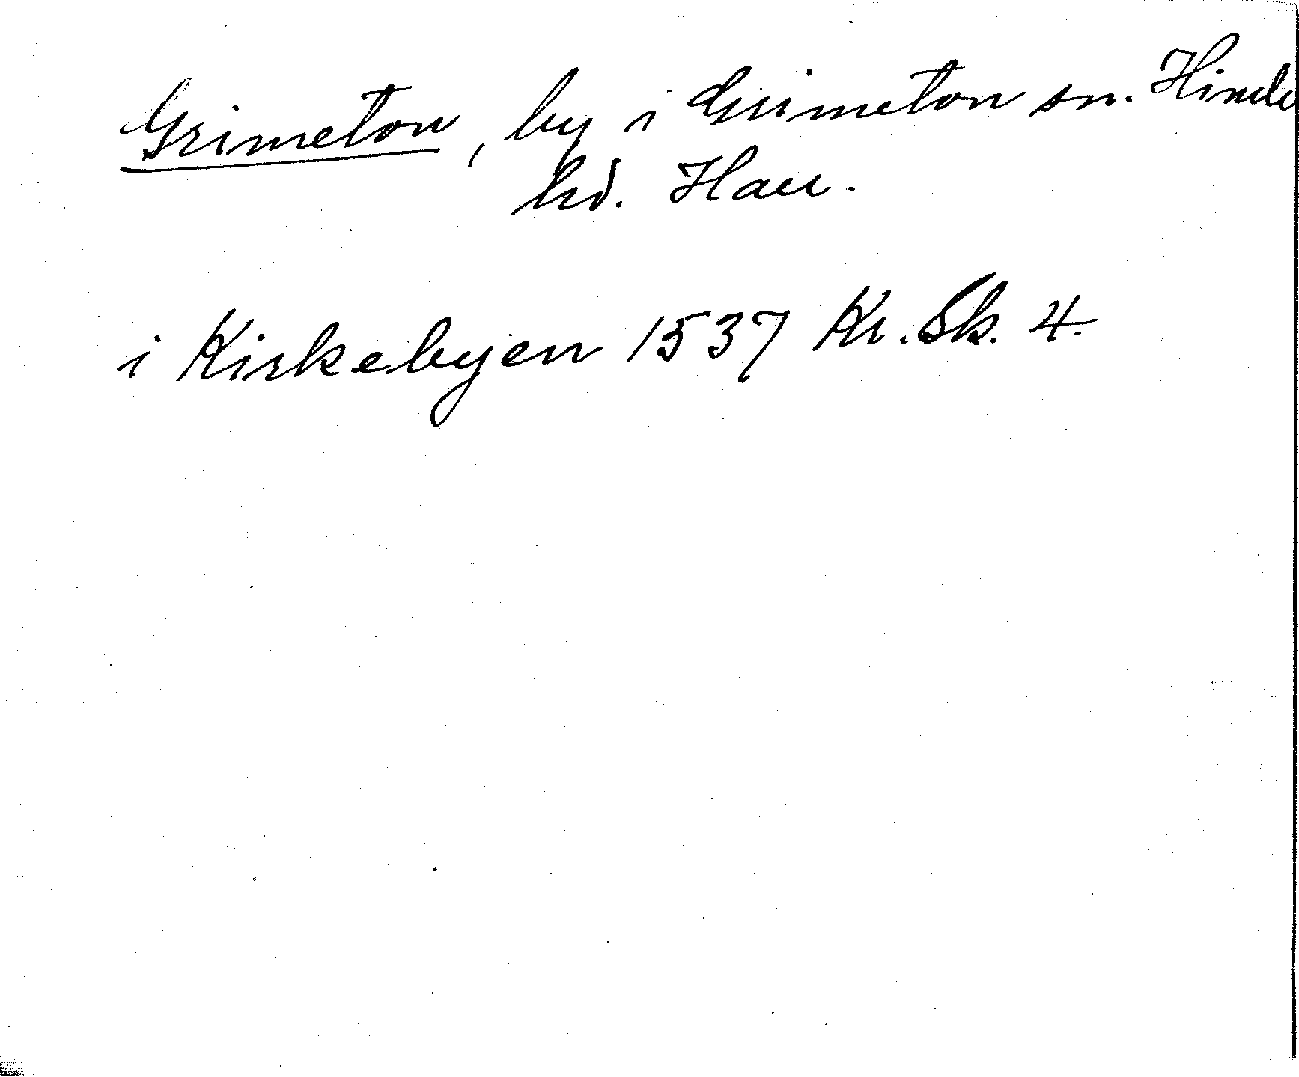 Grimeton, by i Grimeton sn. Himle
hd. Hall.
i Kirkebyen 1537 Kr. Sk. 4.